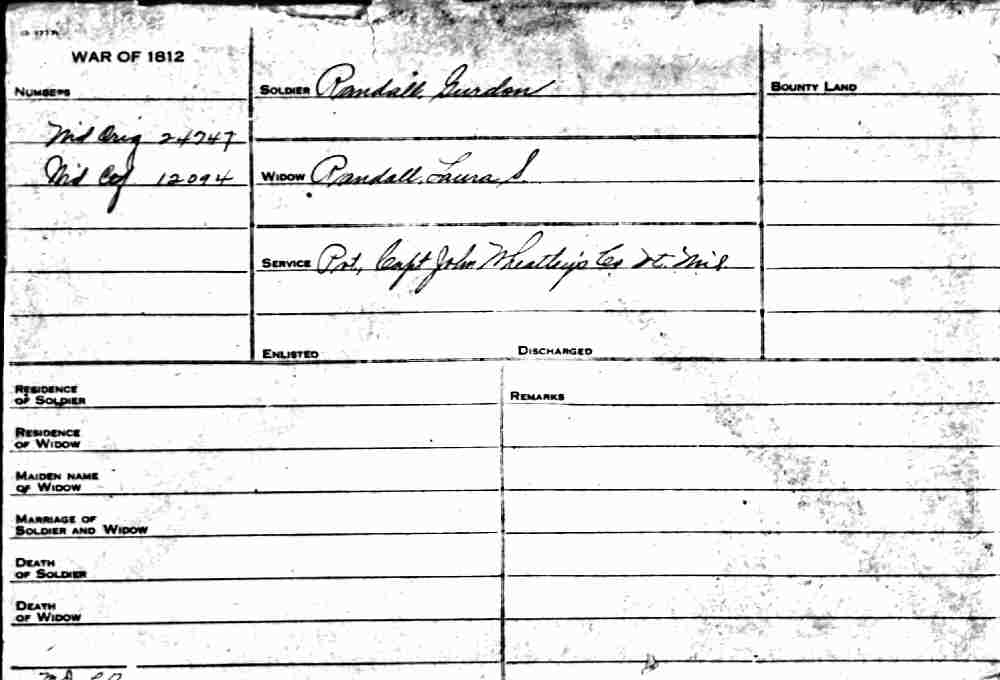 WAR OF 1812
NUMBERS
Wid Orig 24747
Wid Ctf 12094
SOLDIER Randall, Gurdon
WIDOW Randall, Laura S.
SERVICE Pvt, Capt John Wheatley's Co Vt. Mil
ENLISTED DISCHARGED
BOUNTY LAND
RESIDENCE
OF SOLDIER
RESIDENCE
OF WIDOW
MAIDEN NAME
OF WIDOW
MARRIAGE OF
SOLDIER AND WIDOW
DEATH
OF SOLDIER
DEATH
OF WIDOW
REMARKS